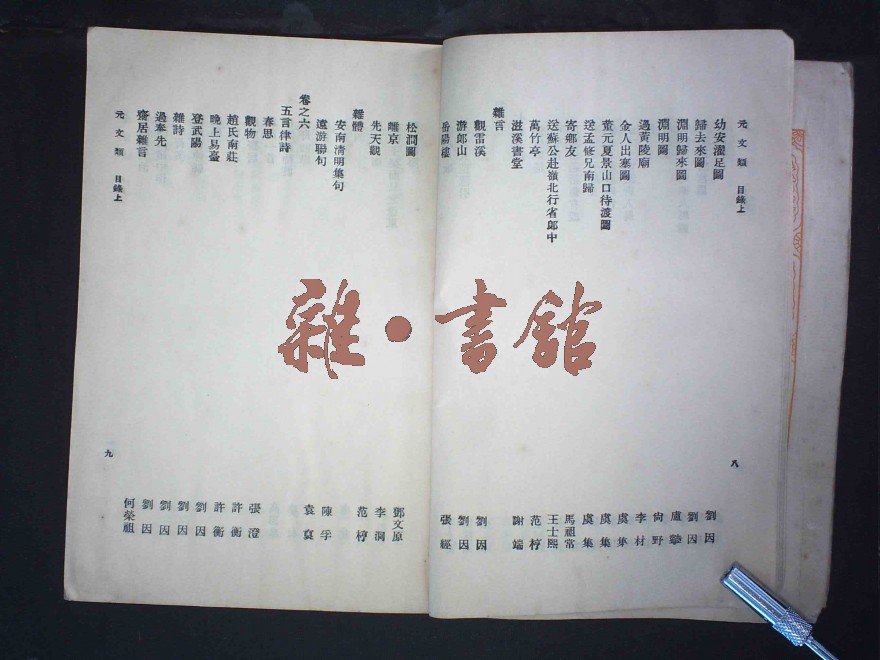 元文類 目錄上
幼安濯足圖 劉因
歸去來圖 劉因
淵明歸來圖 盧摯
淵明圖 尙野
過黃陵廟 李材
金人出塞圖 虞集
董元夏景山口待渡圖 虞集
送孟修兄南歸 虞集
寄鄉友 馬祖常
送蘇公赴嶺北行省郎中 王士熙
萬竹亭 范梈
滋溪書堂 謝端
雜言
觀雷溪 劉因
游郎山 劉因
岳陽樓 張經
八
松澗圖 鄧文原
離京 李泂
先天觀 范梈
雜體
安南淸明集句 陳孚
遠游聯句 袁裒
卷之六
五言律詩
春思 張澄
觀物 許衡
趙氏南莊 許衡
晚上易臺 劉因
登武陽 劉因
雜詩 劉因
過奉先 劉因
齋居雜言 何榮祖
元文類 目錄上
九
雜·書館